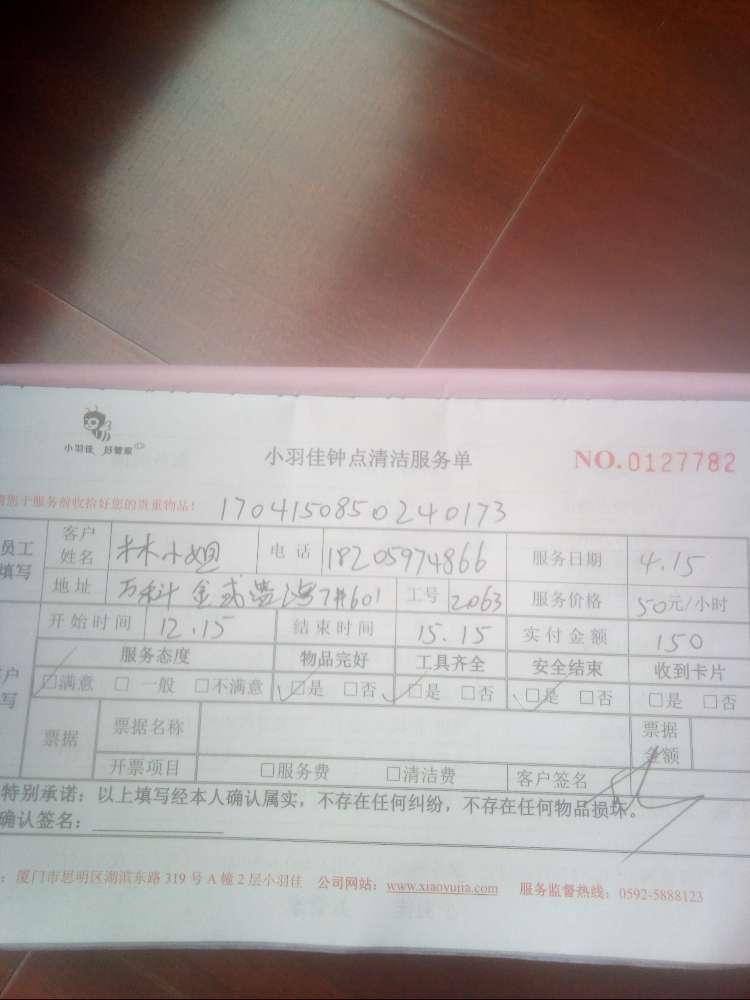 小羽佳 好管家
小羽佳钟点清洁服务单 NO.0127782
请您于服务前收拾好您的贵重物品! 1704150850240173
员工填写 客户姓名 林小姐 电话 18205974866 服务日期 4.15
地址 万科金 7#601 工号 2063 服务价格 50元/小时
开始时间 12.15 结束时间 15.15 实付金额 150
服务态度 物品完好 工具齐全 安全结束 收到卡片
☑满意 □一般 □不满意 ☑是 □否 ☑是 □否 ☑是 □否 □是 □否
票据 票据名称 票据金额
开票项目 □服务费 □清洁费 客户签名
特别承诺:以上填写经本人确认属实,不存在任何纠纷,不存在任何物品损坏。
确认签名:
:厦门市思明区湖滨东路 319 号 A 幢 2 层小羽佳 公司网站:www.xiaoyujia.com 服务监督热线:0592-5888123